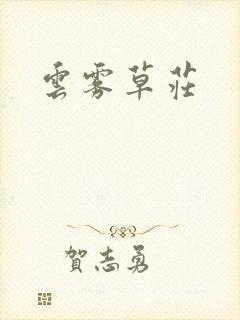 雲雾草莊
賀志勇